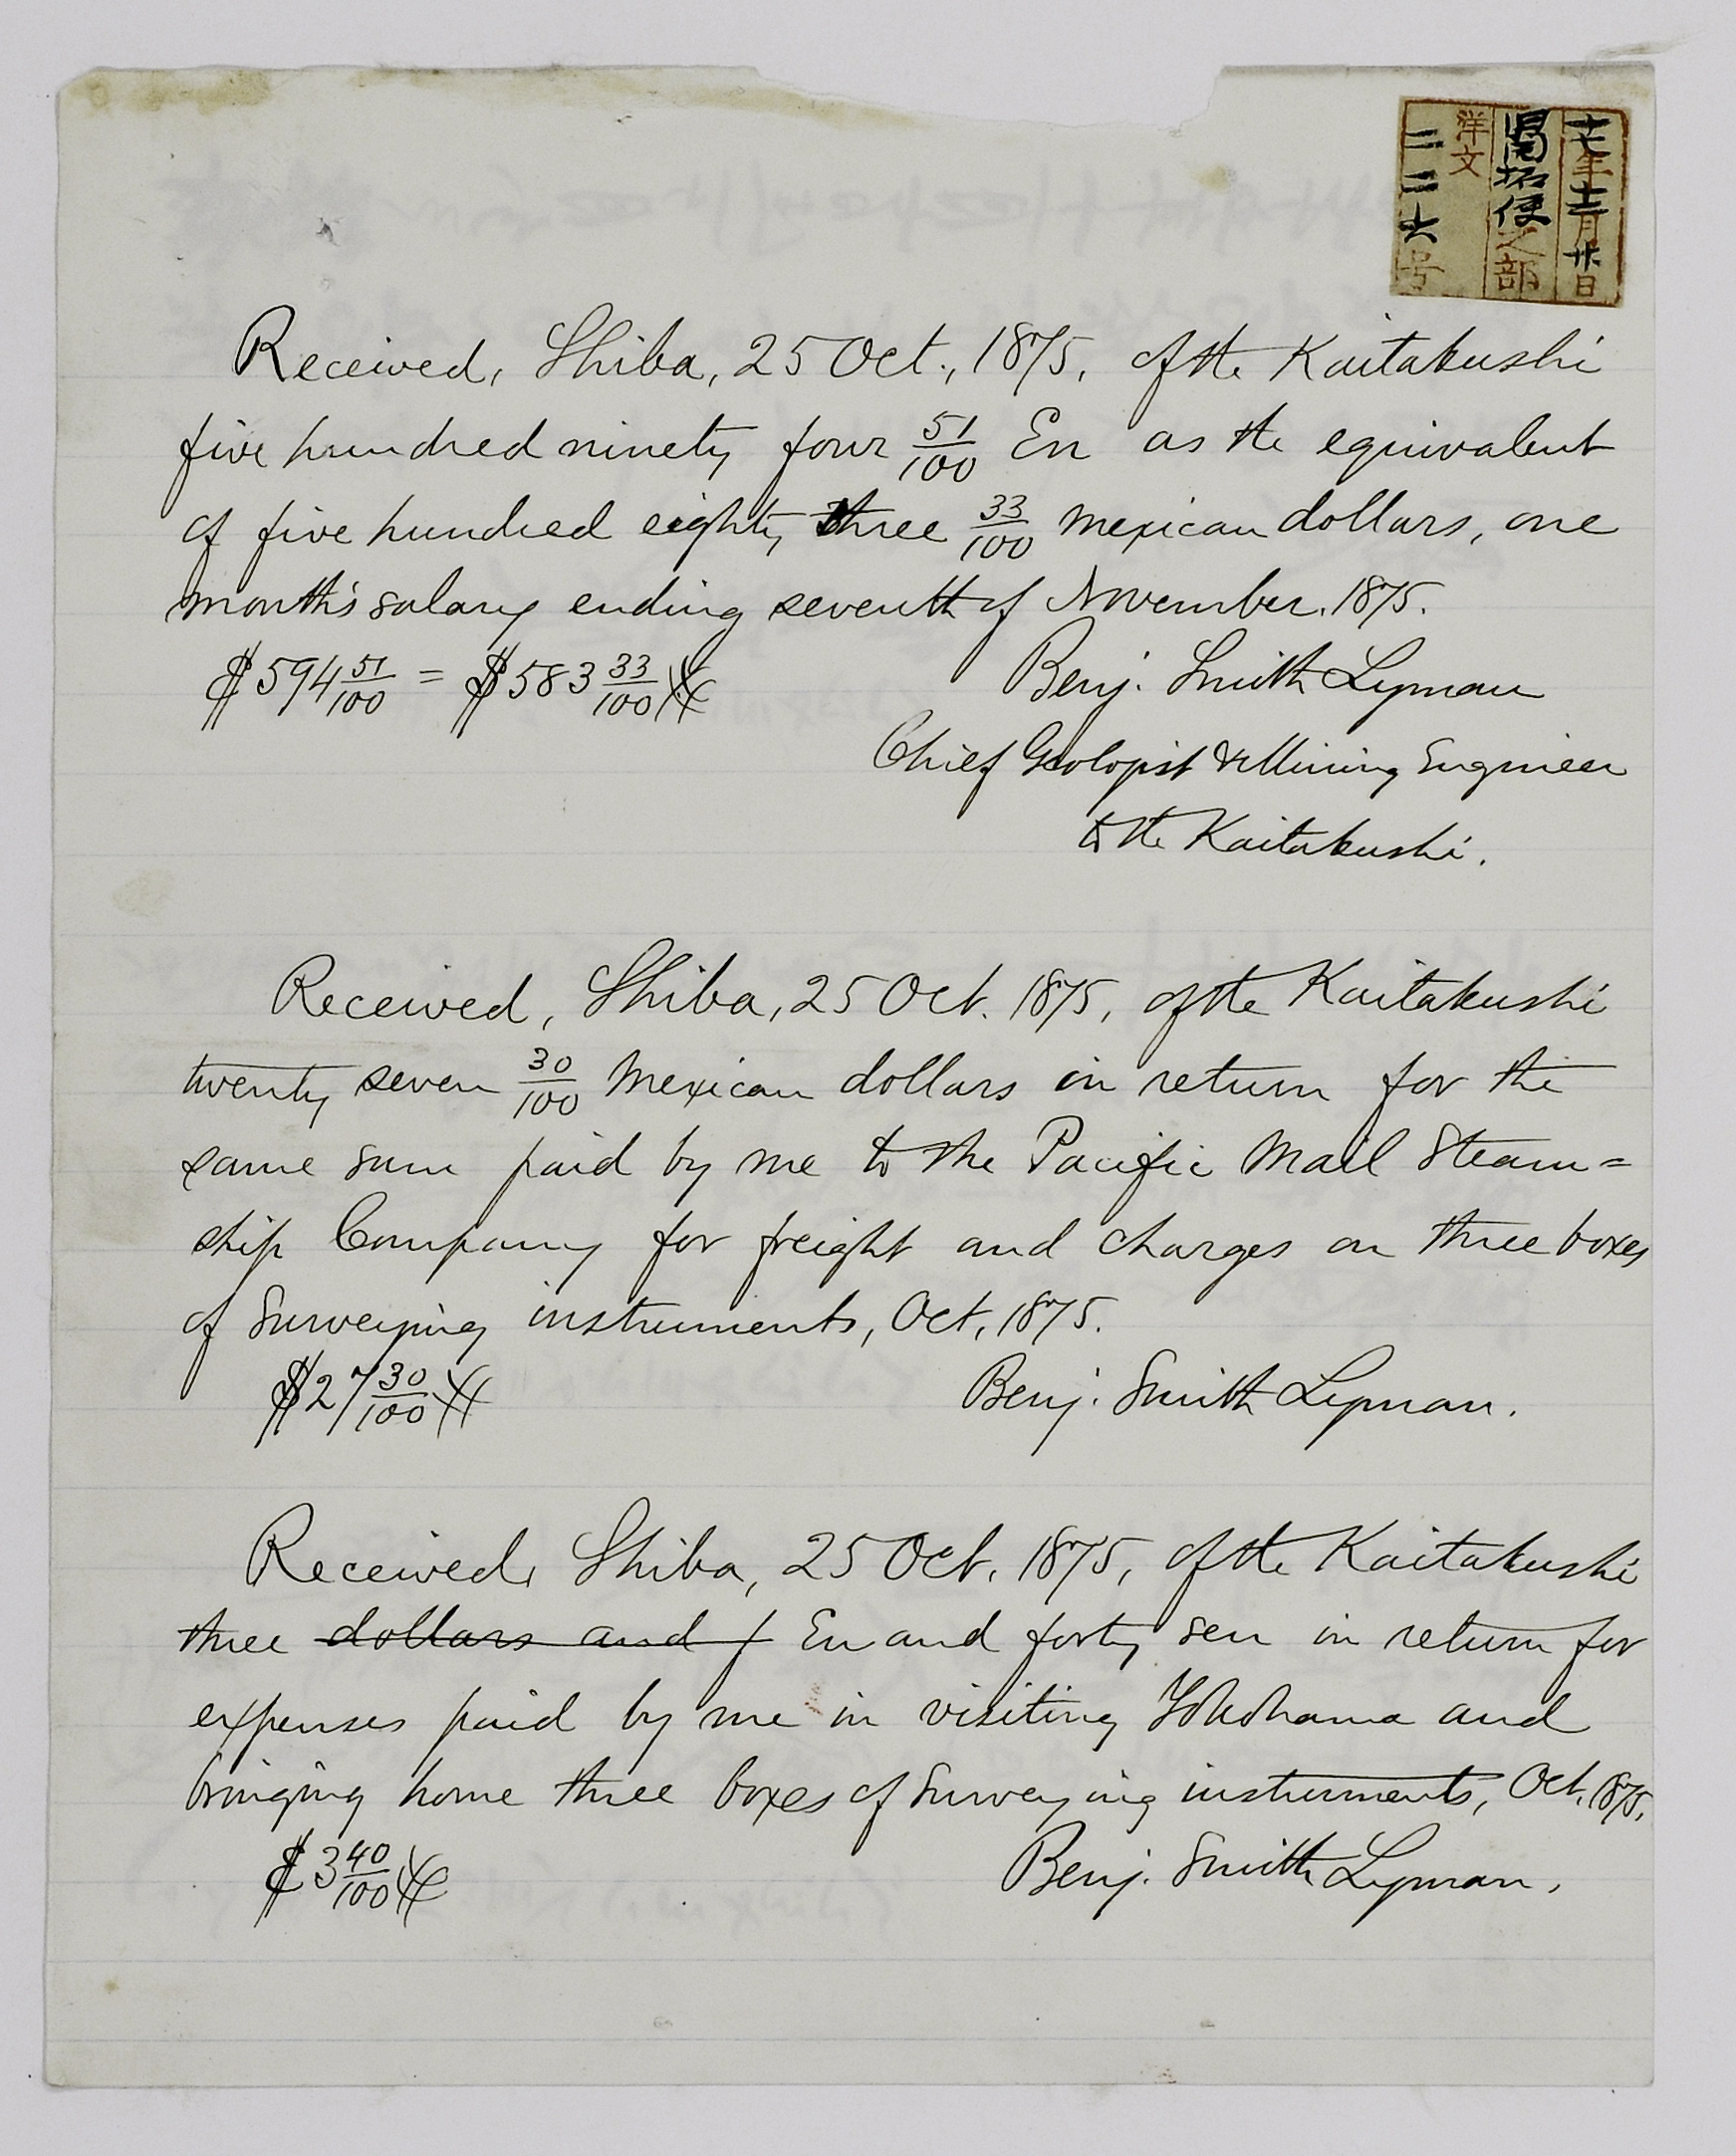 十七年十二月廿日
開拓使之部
洋文
二二六号
Received, Shiba, 25 Oct., 1875, of the Kaitakushi
five hundred ninety four 51/100 En as the equivalent
of five hundred eighty three 33/100 Mexican dollars, one
month's salary ending seventh of November, 1875.
$594 51/100 = $583 33/100
Benj. Smith Lyman
Chief Geologist & Mining Engineer
to the Kaitakushi.
Received, Shiba, 25 Oct. 1875, of the Kaitakushi
twenty seven 30/100 Mexican dollars in return for the
same sum paid by me to the Pacific Mail Steam=
ship Company for freight and charges on three boxes
of Surveying instruments, Oct, 1875.
$27 30/100
Benj. Smith Lyman.
Received, Shiba, 25 Oct, 1875, of the Kaitakushi
three dollars and f En and forty sen in return for
expenses paid by me in visiting Yokohama and
bringing home three boxes of Surveying instruments, Oct, 1875,
$3 40/100
Benj. Smith Lyman.